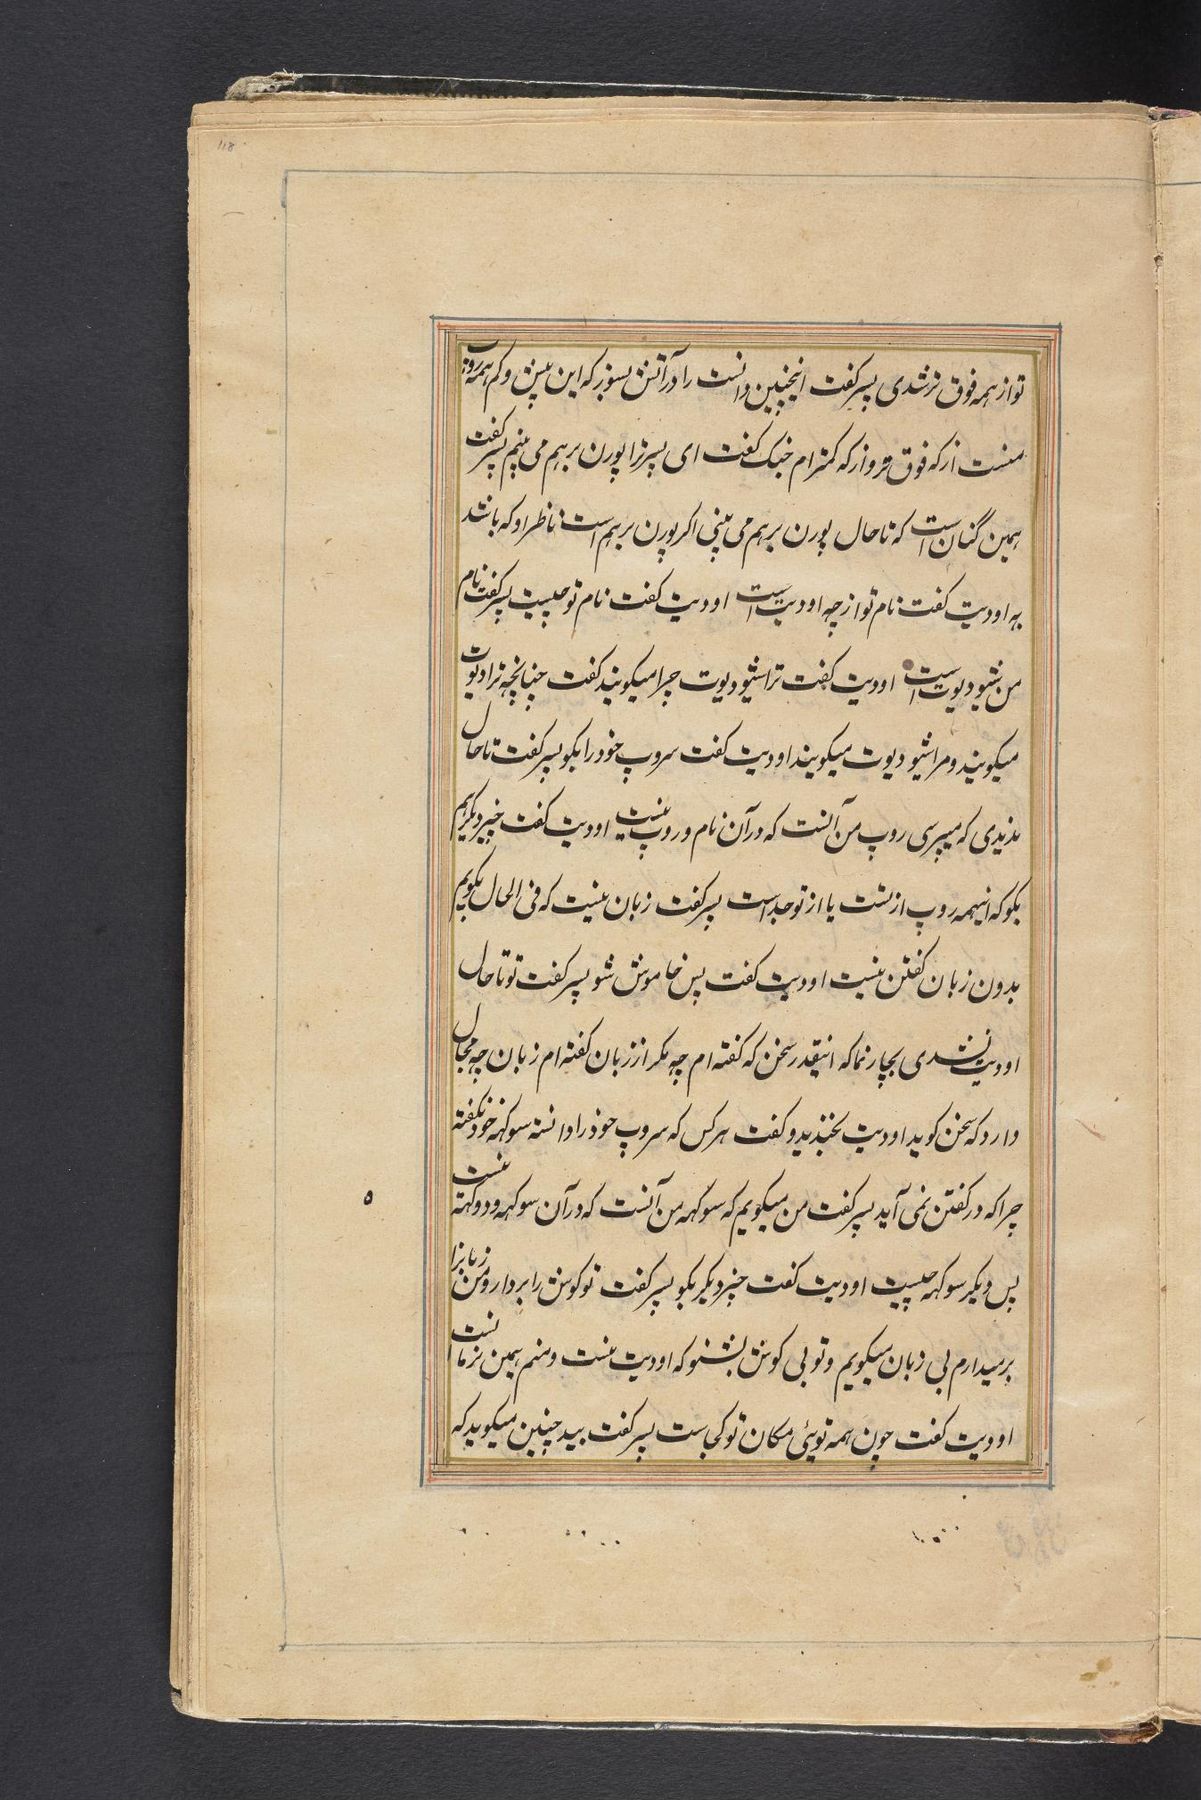 118
تو از همه فوق تر شدی پسر گفت اینچنین دانست را در آتش بسوز که این بیش و کم همه روپ
منست از که فوق تر و از که کمتر ام جنک گفت ای پسر ترا پورن برهم می بینم پسر گفت
همین گنان است که تا حال پورن برهم می بینی اگر پورن برهم است ناظر او که باشد
به اودیت گفت نام تو از چه اودیت است اودیت گفت نام تو چیست پسر گفت نام
من شیو دیوت است اودیت گفت ترا شیو دیوت چرا میگویند گفت چنانچه ترا دیوت
میگویند و مرا شیو دیوت میگویند اودیت گفت سروپ خود را بگو پسر گفت تا حال
ندیدی که میپرسی روپ من آنست که در آن نام و روپ نیست اودیت گفت خبر دیگر هم
بگو که اینهمه روپ از تست یا از تو جداست پسر گفت زبان نیست که فی الحال بگویم
بدون زبان گفتن نیست اودیت گفت پس خاموش شو پسر گفت تو تا حال
اودیت نشدی بچار نما که اینقدر سخن که گفته ام چه مگر از زبان گفته ام زبان چه مجال
دارد که سخن گوید اودیت بخندید و گفت هر کس که سروپ خود را دانسته سوکهه خود نگفته
چرا که در گفتن نمی آید پسر گفت من میگویم که سوکهه من آنست که در آن سوکهه و دوکهه نیست
پس دیگر سوکهه چیست اودیت گفت چیز دیگر بگو پسر گفت تو گوش را بردار و من زبانرا
برمیدارم بی زبان میگویم و تو بی گوش بشنو که اودیت نیست و منم همین
اودیت گفت چون همه توئی مکان تو کجاست پسر گفت بید چنین میگوید که